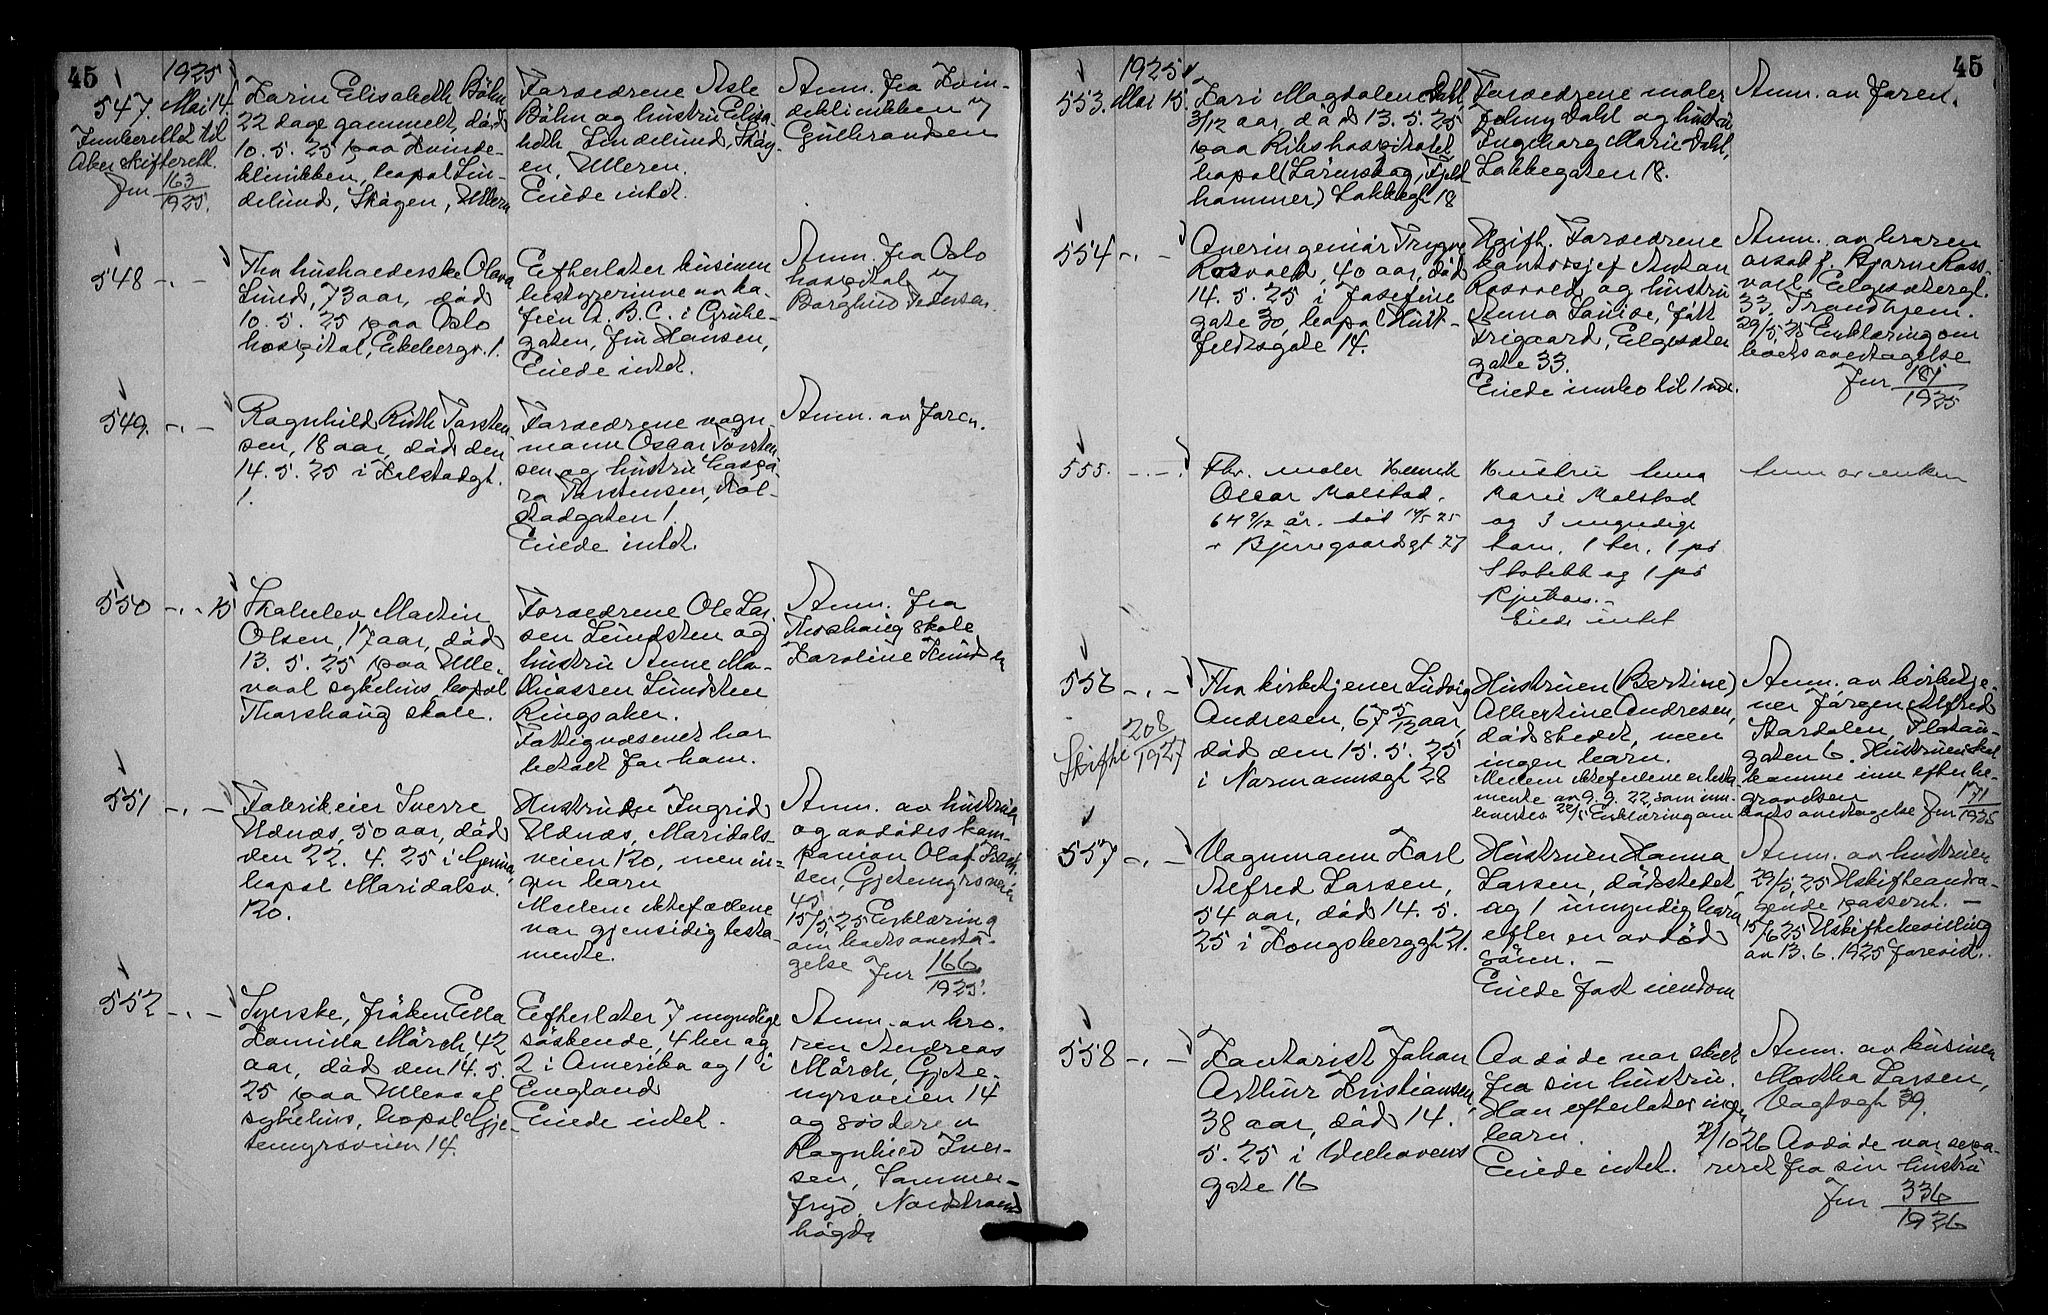 45
1925
547. Mai 14.
Innberettet til
Aker skifterett.
Jnr 163/1925.
Karin Elisabeth Böhn
22 dage gammelt, död
10. 5. 25 paa Kvinde-
klinikken, bopæl Lin-
delund, Skögen, Ullern
Forældrene Asle
Böhn og hustru Elisa-
beth Lindelund, Skög-
en, Ullern.
Eiede intet.
Anm. fra Kvin-
deklinikken v
Gulbrandsen
548 -.-
Fhv husholderske Olava
Lund, 73 aar, död
10. 5. 25 paa Oslo
hospital, Ekebergv. 1.
Efterlater kusinen
bestyrerinne av ka-
feen A. B. C. i Grube-
gaten, fru Hansen,
Eiede intet.
Anm. fra Oslo
hospital v
Borghild Pedersen.
549. -.-
Ragnhild Ruth Torsten-
sen, 18 aar, död den
14. 5. 25 i Kolstadgt.
1.
Forældrene vogn-
mann Oscar Torsten-
sen og hustru
Torstensen, Kol-
stadgaten 1.
Eiede intet.
Anm. av faren.
550 -.- 15
Martin
Olsen, 17 aar, död
13. 5. 25 paa Ulle-
vaal sykehus, bopæl
Thorshaug skole.
Forældrene Ole Lar-
sen Lundsten og
hustru Anne Ma-
thiassen Lundsten
Ringsaker.
Fattigvæsenet har
betalt for ham.
Anm. fra
Thorshaug skole
Karoline
551 -.-
Fabrikeier Sverre
Udnæs, 50 aar, död
den 22. 4. 25 i
bopæl Maridalsv.
120.
Hustruen Ingrid
Udnæs, Maridals-
veien 120, men in-
gen barn
Mellem ektefællene
var gjensidig testa-
mente.
Anm. av hustruen
og avdödes kom-
panion Olaf
sen, Gjetemyrsveien
15/5 25 Erklæring
om boets overta-
gelse Jnr 166/1925.
552 -.-
Syerske, fröken Ella
Kamilla Mörch, 42
aar, död den 14. 5.
25 paa Ullevaal
sykehus, bopæl Gje-
temyrsveien 14.
Efterlater 7 myndige
söskende, 4 her og
2 i Amerika og 1 i
England
Eiede intet.
Anm. av bro-
ren Andreas
Mörch, Gjete-
myrsveien 14
og söstere n
Ragnhild Iver-
sen, Sommer-
fryd, Nordstrands
högda
45
1925
553. Mai 15.
Kari Magdalene Dahl
3/12 aar, död 13. 5. 25
paa Rikshospitalet
bopæl (Lörenskog, Fjell-
hammer) Lakkegt 18
Forældrene maler
Johny Dahl og hustru
Ingeborg Marie Dahl,
Lakkegaten 18.
Anm. av faren.
554 -.-
Overingeniör Trygve
Rosvold, 40 aar, död
14. 5. 25 i Josefine
gate 30, bopæl Huit-
feldtsgate 14.
Ugift. Forældrene
kontorsjef Anton
Rosvold og hustru
Anna Louise, födt
Trigaard, Elgesæter
gate 33.
Eiede innbo til 1 vær.
Anm. av broren
Bjarne Ross-
voll, Elgesætergt.
33, Trondhjem.
29/5 25 Erklæring om
boets overtagelse
Jnr 181/1925
555. -.-
Fhv. maler Henrik
Oscar Malstad.
64 9/12 år. död 14/5 25
i Bjerregaardsgt 27
Hustru Anna
Marie Malstad
og 3 myndige
barn. 1 her, 1 på
Stabekk og 1 på
Eiede intet
Anm av enken
556 -.-
Skifte 208/1927
Fhv kirketjener Ludvig
Andresen, 67 5/12 aar,
död den 15. 5. 25
i Normannsgt 28
Hustruen (Bertine)
Albertine Andresen,
dödsstedet, men
ingen barn.
Mellem ektefellene er testa-
mente av 9. 9. 22, som inn-
leveres 22/5 Erklæring om
Anm. av kirketje-
ner Jörgen Alfred
Stardalen, Platou-
gaten 6. Hustruen skal
komme inn efter be-
gravelsen
boets overtagelse Jnr 171/1925
557 -.-
Vognmann Karl
Alfred Larsen,
54 aar, död 14. 5.
25 i Kongsberggt 21.
Hustruen Hanna
Larsen, dödstedet,
og 1 umyndig barn
efter en avdöd
sönn. -
Eiede fast eiendom
Anm. av hustruen
29/5 25 Uskifteandra-
gende passeret. -
15/6 25 Uskiftebevilling
av 13. 6. 1925 forevist.
558 -.-
Kontorist Johan
Arthur Kristiansen,
38 aar, död 14.
5. 25 i Welhavens
gate 16
Avdöde var skilt
fra sin hustru.
Han efterlater ingen
barn.
Eiede intet.
Anm. av kusinen
Martha Larsen,
Vogtsgt 39.
2/10 26 Avdöde var sepa-
reret fra sin hustru
Jnr 336/1926